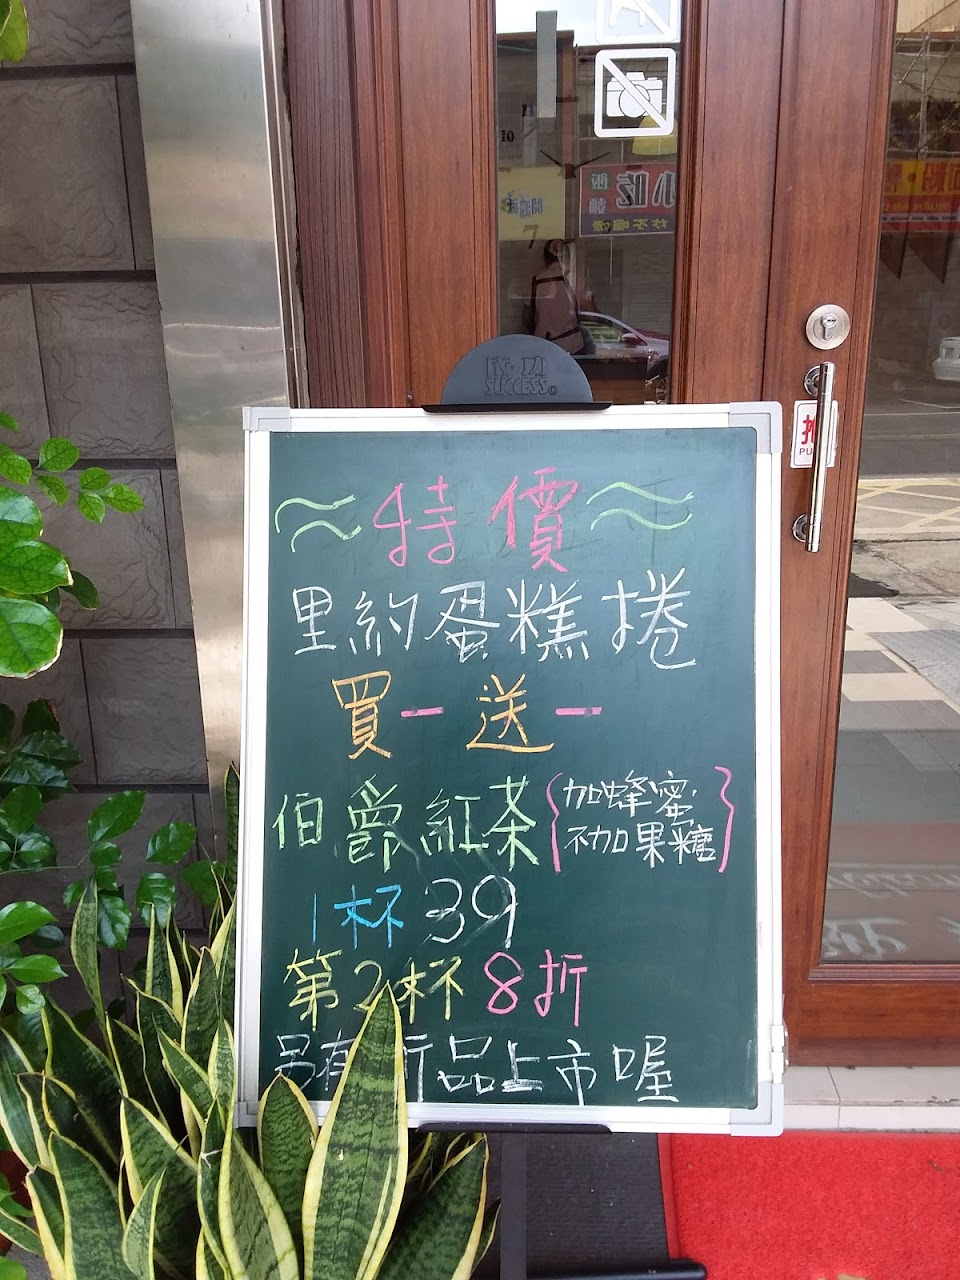 10
11
7
小吃
成功
SUCCESS
～特價～
里約蛋糕捲
買一送一
伯爵紅茶{加蜂蜜,
不加果糖}
1杯39
第2杯8折
另有新品上市喔